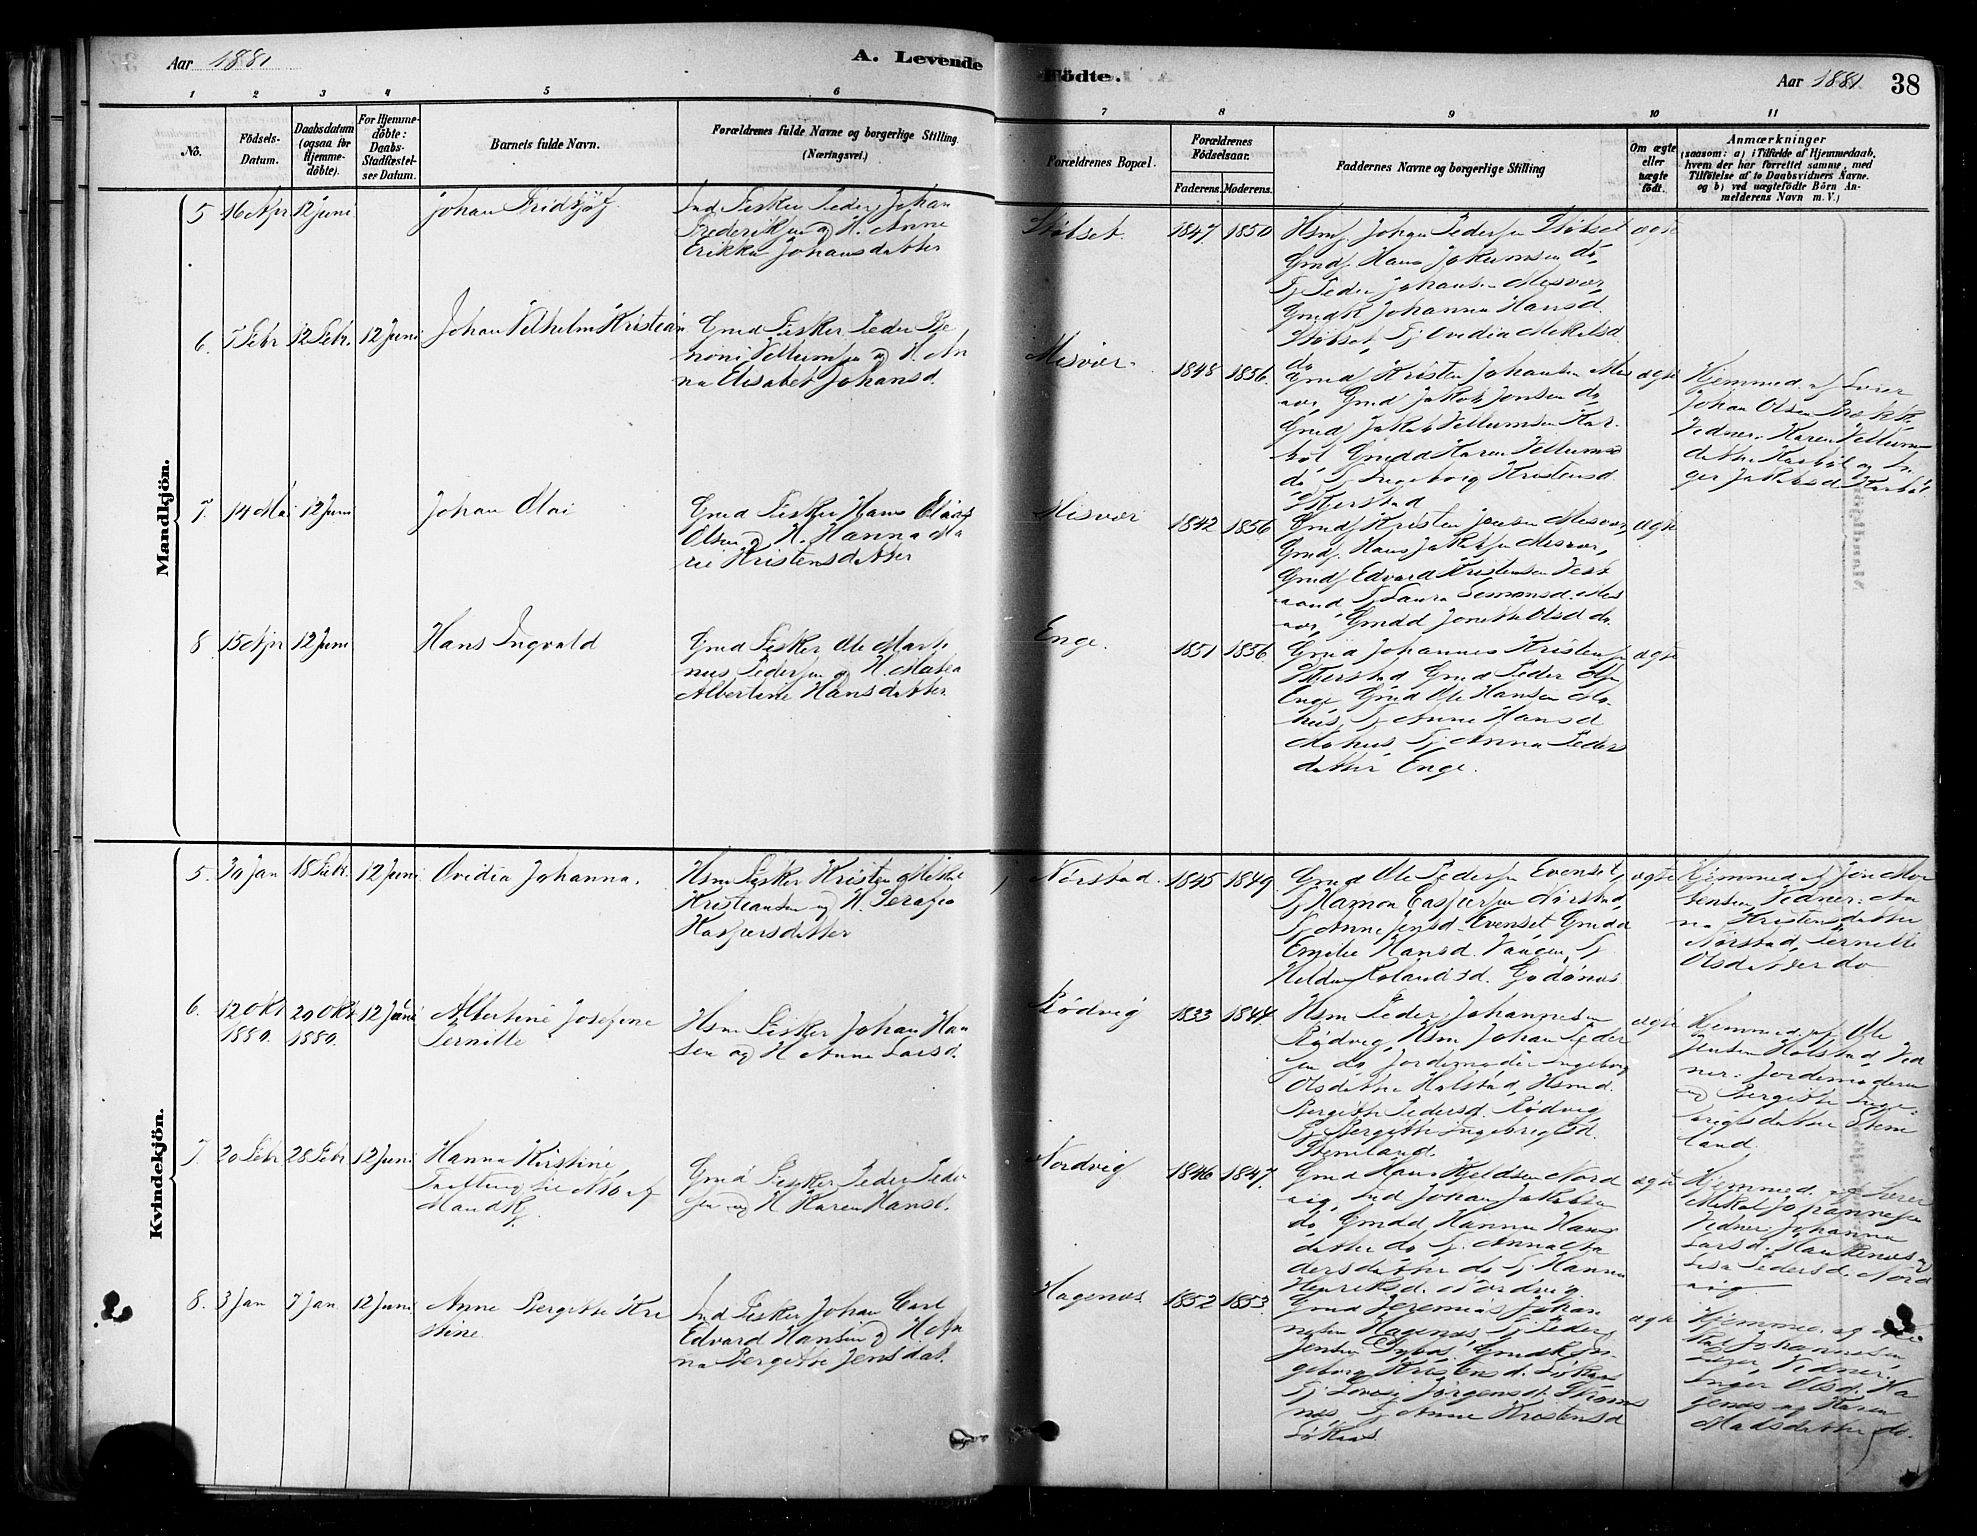 Aar 1881
A. Levende
Födte.
Aar 1881
38
1
2
3
4
5
6
7
8
9
10
11
No.
Födsels-
Datum.
Daabsdatum
(ogsaa for
Hjemme-
döbte).
For Hjemme-
döbte:
Daabs-
Stadfæstel-
ses Datum.
Barnets fulde Navn.
Forældrenes fulde Navne og borgerlige Stilling
(Næringsvei.)
Forældrenes Bopæl.
Forældrenes
Födselsaar.
Faderens.
Moderens.
Faddernes Navne og borgerlige Stilling
Om ægte
eller
uægte
födt.
Anmærkninger
(saasom: a) i Tilfælde af Hjemmedaab,
hvem der har forrettet samme, med
Tilföielse af to Daabsvidners Navne.
og b) ved uægtefödte Börn An-
melderens Navn m. V.)
Mandkjön.
5
16 Apr
12 Juni
Johan Fridtjof
Ind Fisker Peder Johan
Frederiksen og H. Anne
Erikka Johansdatter
Støbset.
1847
1850
Hsmf Johan Pedersen Støbset
Gmdf. Hans Jokumsen do,
Tj Peder Johansen Misvær,
Gmdk Johanna Hansd.
Støbset, Tj Ovidia Mekelsd
do
ægte
6.
5 Febr
12 Febr.
12 Juni
Johan Vilhelm Kristian
Gmd Fisker Peder Be
noni Vellumsen og H. An
na Elisabet Johansd.
Misvær
1848
1856.
Gmd Kristen Johansen Mis
vær, Gmd Jakob Jonsen do,
Gmdf Jakob Vellumsen Kar-
bøl Gmdd Karen Vellumsd
do Tj Ingeborg Kristensd
Therstad
ægte
Hjemmed. af Lærer
Johan Olsen Brekk.
Vidner: Karen Vellums
datter Karbøl og In
ger Jakobsd Karbøl
7.
14 Mai
12 Juni
Johan Olai
Gmd Fisker Hans Olaus
Olsen og H. Hanna Ma
rie Kristensdatter
Misvær
1842
1856
Gmdf Kristen Jensen Misvær,
Gmdf. Hans Jakobsen Misvær,
Gmdf Edvard Kristensen Vest
vand Tj Laura Simonsd. Mis
vær, Gmdd Jonetta Olsd do
ægte
8
15 Apr
12 Juni
Hans Ingvald
Gmd Fisker Ole Marti
nus Pedersen og H. Masea
Albertine Hansdatter
Enge.
1851
1856.
Gmd Johannes Kristensen
Therstad Gmd Peder Olsen
Enge, Gmd Ole Hansen Mo-
hus, Tj Anne Hansd
Mohus, Tj Anna Peders
datter Enge.
ægte
Kvindekjön.
5.
30 Jan
18 Febr.
12 Juni
Ovidia Johanna.
Hsm Fisker Kristen Mikal
Kristiansen og H. Serafia
Kaspersdatter
Nørstad.
1845
1849.
Gmd Ole Pedersen Evenset,
Tj Hamon Caspersen Nørstad,
Tj Anne Jensd. Evenset Gmdd
Emilie Hansd. Vaagen, Tj
Helda Rolandsd. Godønes
ægte
Hjemmed af Jon Mor
tensen, Vidner: An
na Kristensdatter
Nørstad, Pernille
Olsdatter do
6.
12 Okt
1880.
20 Okt
1880.
12 Juni
Albertine Josefine
Pernille
Hsm Fisker Johan Han
sen og H Anne Larsd.
Rødvig
1833
1844.
Hsm Peder Johannesen
Rødvig, Hsm Johan Peder
sen do Jordemoder Ingeborg
Olsdatter Halstad, Hsmd.
Bergitte Pedersd. Rødvig
Tj Bergitte Ingebrigtsd.
Stemland.
ægte
Hjemmed. af Ole
Jensen Holstad, Vid
ner: Jordemoderen
og Bergitte Inge-
brigtsdatter Stem
land.
7.
20 Febr
28 Febr
12 Juni
Hanna Kirstine,
Tvilling til No af
Mandk.
Gmd Fisker Peder Peder
sen og H Karen Hansd.
Nordvig
1846
1847.
Gmd Hans Kjeldsen Nord
vig, Ind Johan Jakobsen
do, Gmdd Hanna Hans
datter do Tj. Anna An
dersdatter do Tj Hanna
Henriksd. Nordvig
ægte
Hjemmed. af Lærer
Mikal Johannesen
Vidner: Johanna
Larsd. Haukenæs og
Lisa Pedersd. Nord
vig
8.
3 Jan
7 Jan
12 Juni
Anne Bergitte Kri
stine.
Ind Fisker Johan Carl
Edvard Hansen og H. An
na Bergitte Jensdat.
Hagenæs
1852
1853.
Gmd Jeremias Johan
nesen Hagenæs, Tj Peder
Jensen Gybos, Gmdk In
geborg Kristensd. Løkaas
Tj Lovise Jørgensd. Strøms
næs Tj Anne Kristensd
Løkaas
ægte
Hjemme
kal Johannesen
Lærer Vidner:
Inger Olsd. Ha
genæs og Karen
Madsdatter do.